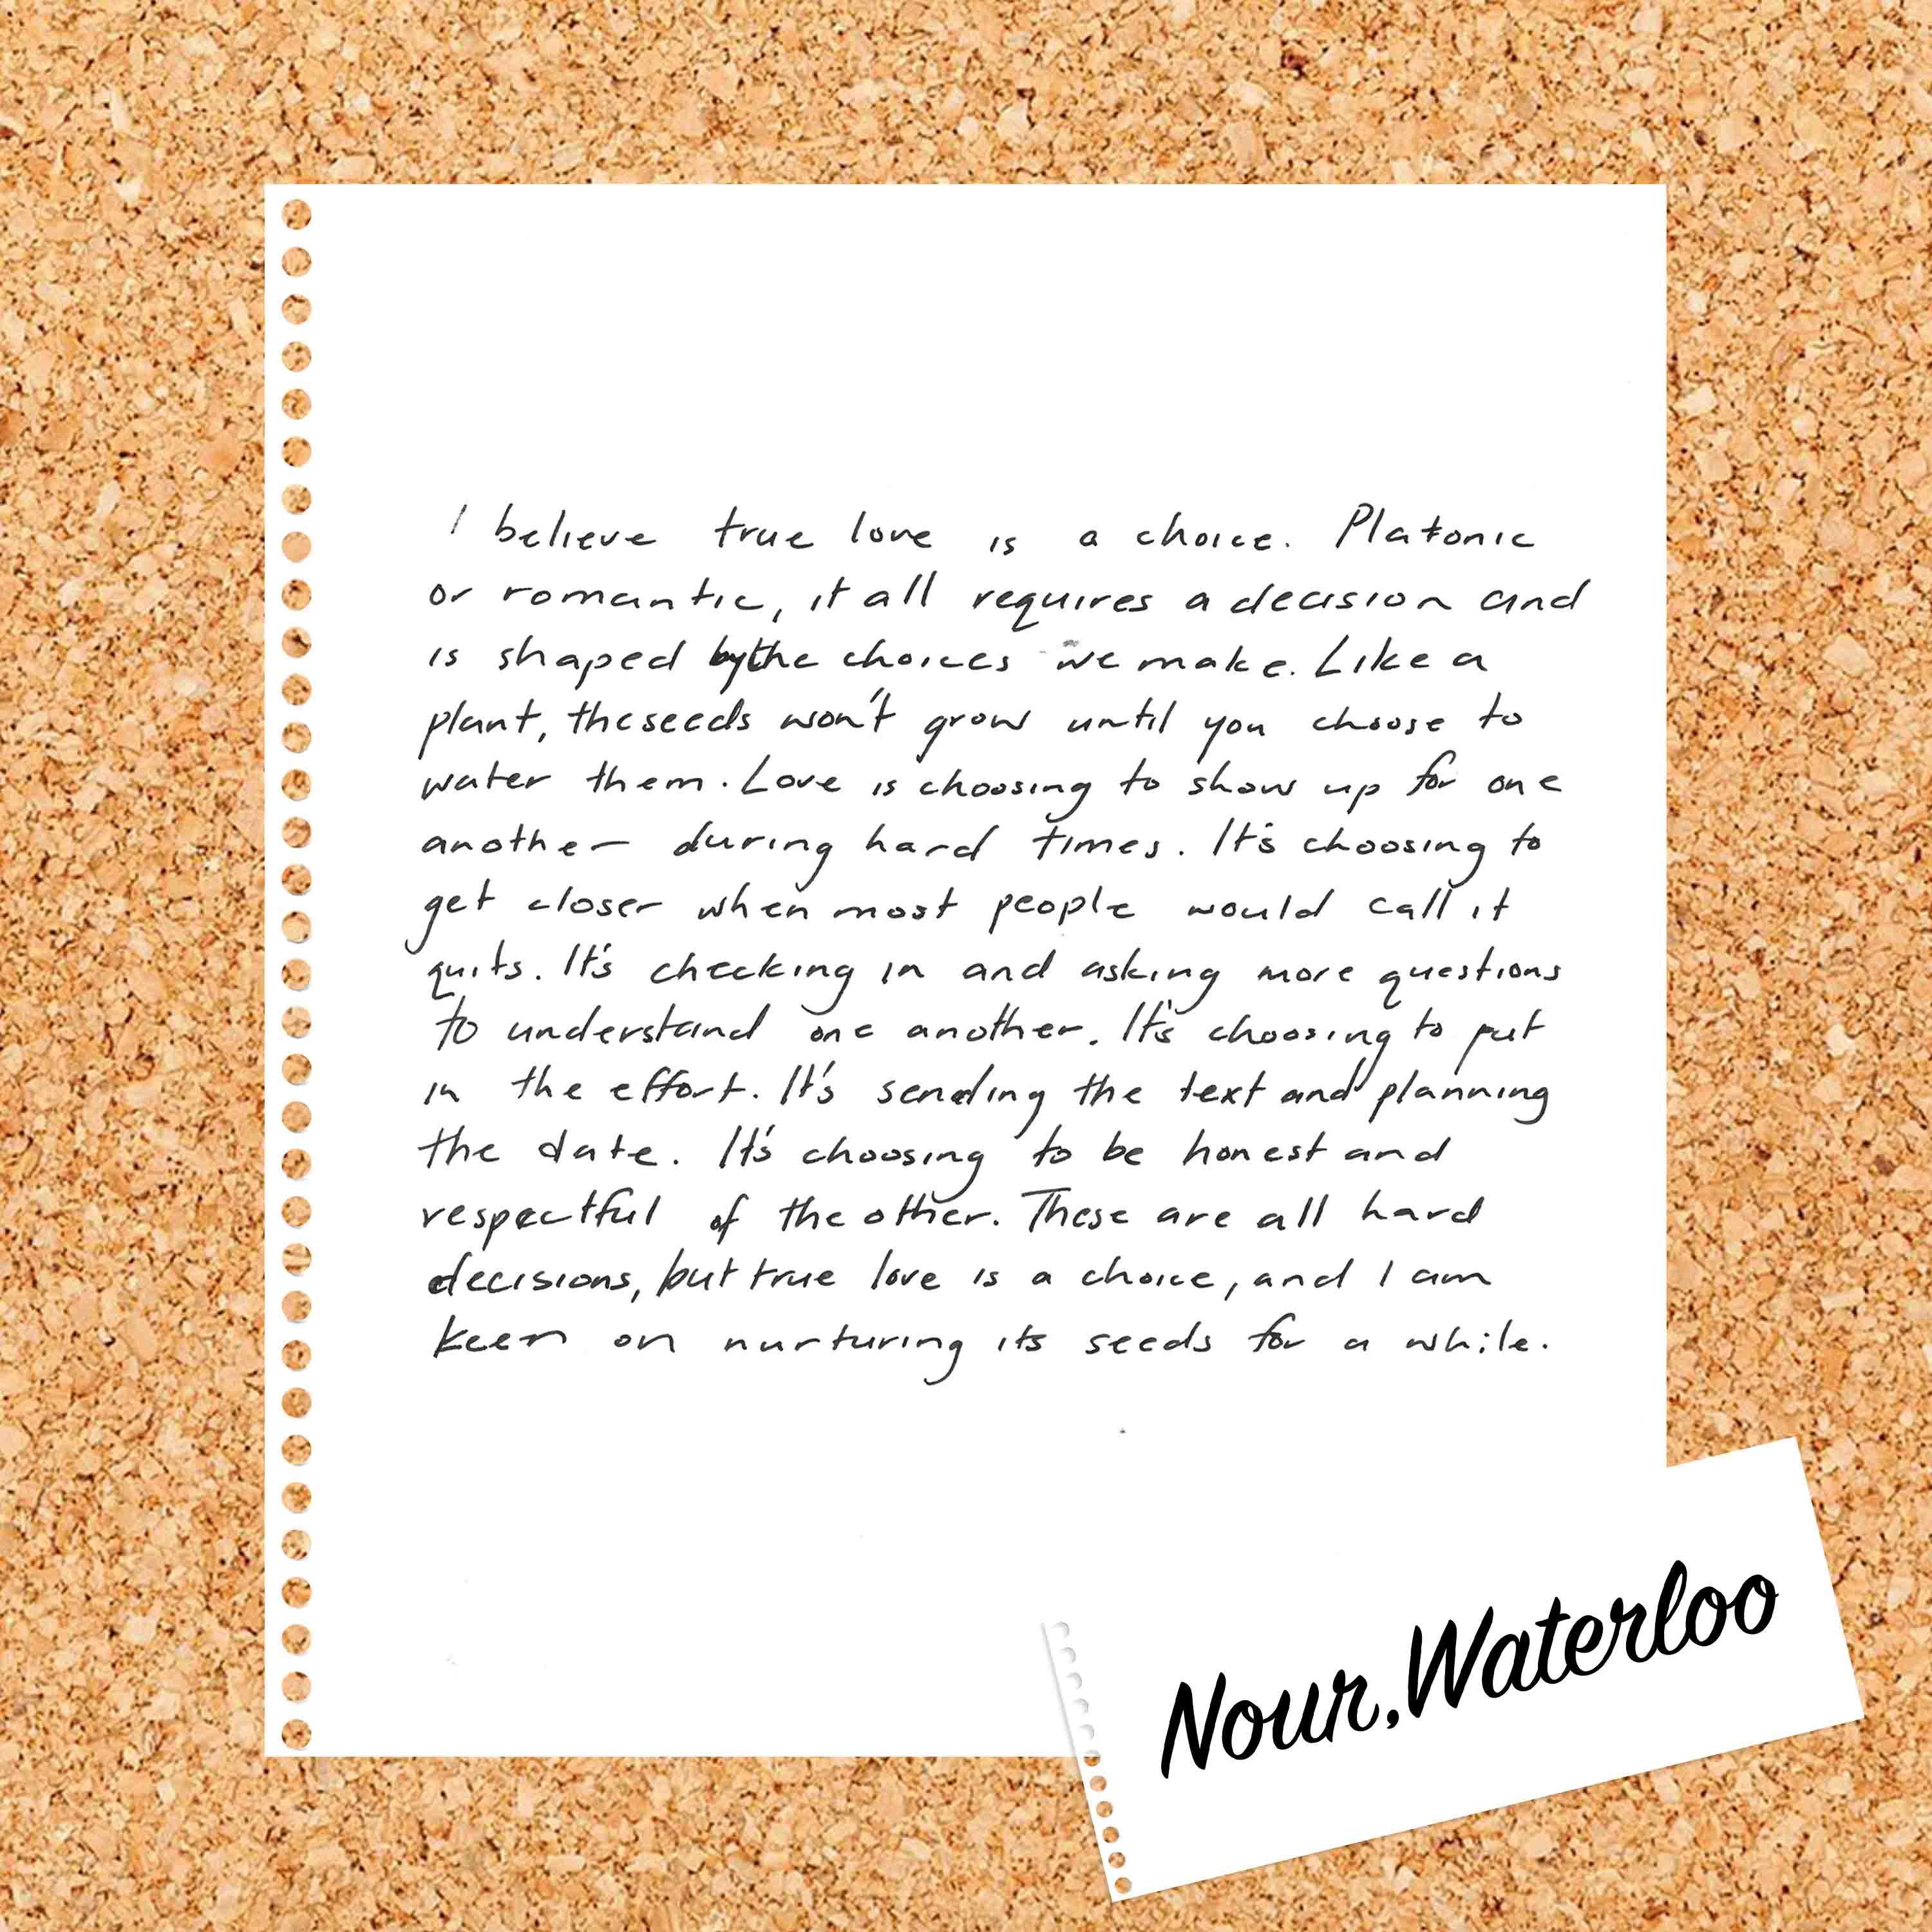 I believe true love is a choice. Platonic
or romantic, it all requires a decision and
is shaped by the choices we make. Like a
plant, the seeds won't grow until you choose to
water them. Love is choosing to show up for one
another during hard times. It's choosing to
get closer when most people would call it
quits. It's checking in and asking more questions
to understand one another. It's choosing to put
in the effort. It's sending the text and planning
the date. It's choosing to be honest and
respectful of the other. These are all hard
decisions, but true love is a choice, and I am
keen on nurturing its seeds for a while.
Nour, Waterloo